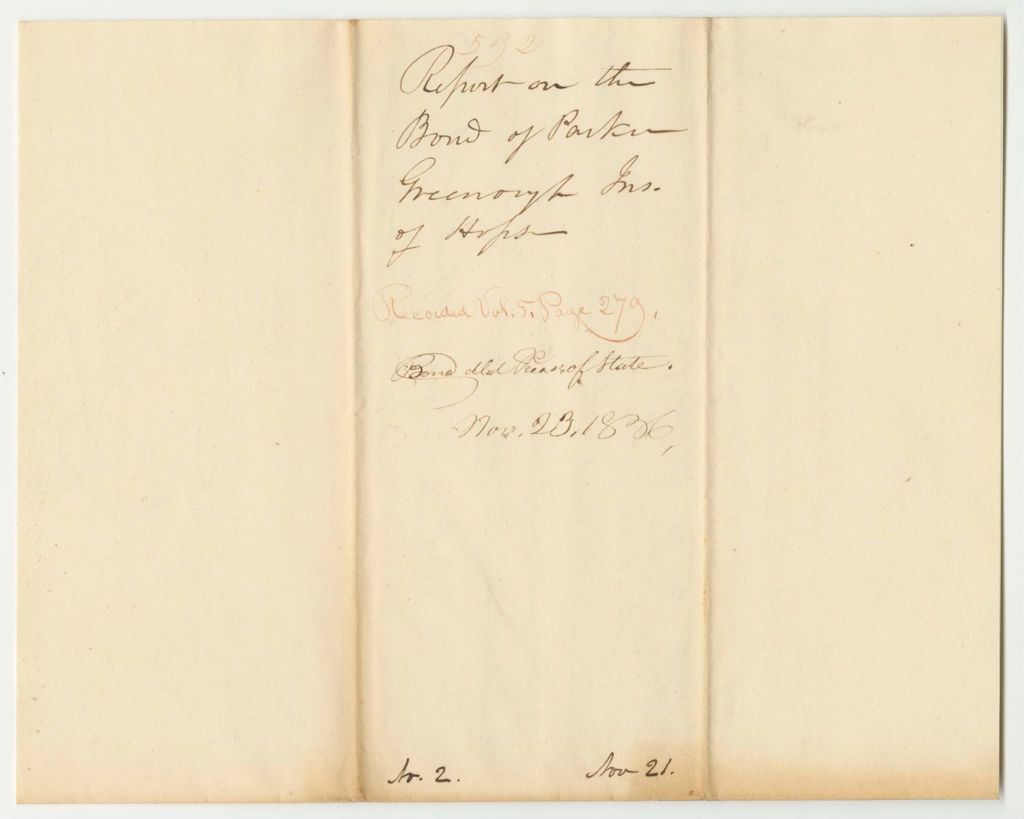 592
Report on the
Bond of Parker
Greenough Ins.
of Hops
Recorded Vol. 5. Page 279.
Bond dld Treas. of State.
Nov. 23. 1836,
No. 2. Nov 21.